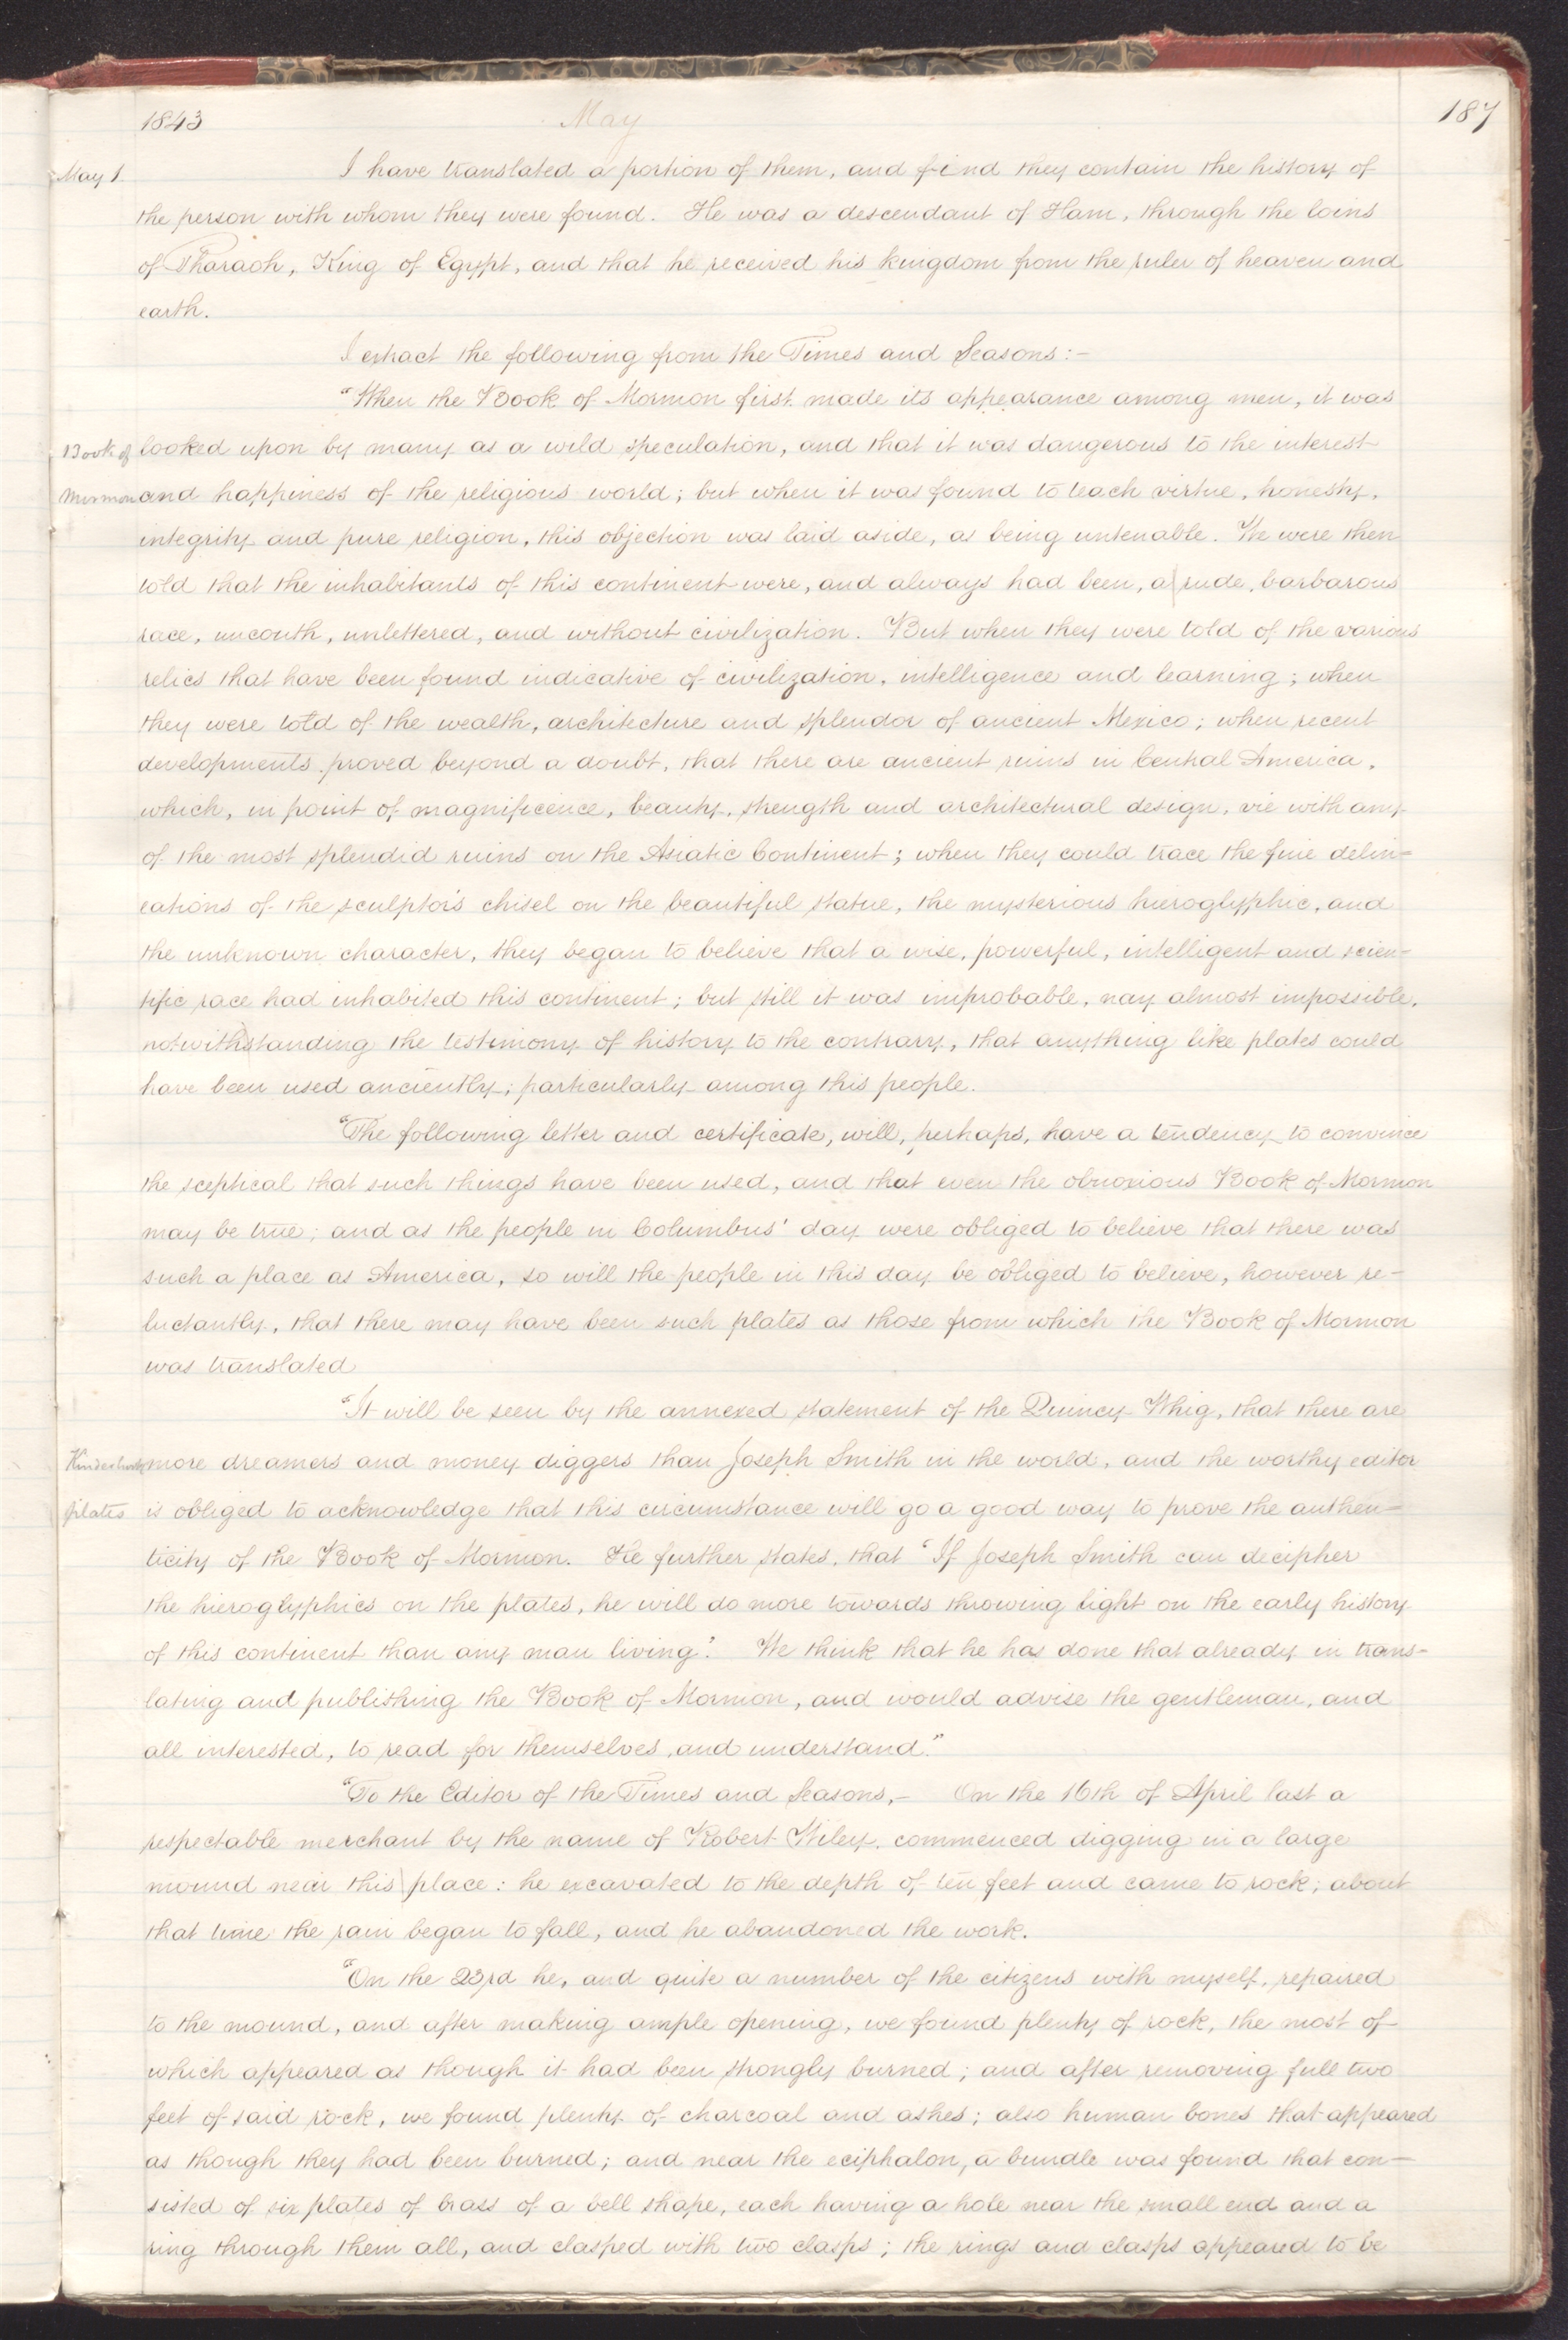 1843 May 187
May 1. I have translated a portion of them, and find they contain the history of
the person with whom they were found. He was a descendant of Ham, through the loins
of Pharaoh, King of Egypt, and that he received his kingdom from the ruler of heaven and
earth.
I extract the following from the Times and Seasons:-
"When the Book of Mormon first made its appearance among men, it was
Book of looked upon by many as a wild speculation, and that it was dangerous to the interest
Mormon and happiness of the religious world; but when it was found to teach virtue, honesty,
integrity and pure religion, this objection was laid aside, as being untenable. We were then
told that the inhabitants of this continent were, and always had been, a rude, barbarous
race, uncouth, unlettered, and without civilization. But when they were told of the various
relics that have been found indicative of civilization, intelligence and learning; when
they were told of the wealth, architecture and splendor of ancient Mexico; when recent
developments proved beyond a doubt, that there are ancient ruins in Central America,
which, in point of magnificence, beauty, strength and architectural design, vie with any
of the most splendid ruins on the Asiatic Continent; when they could trace the fine delin=
eations of the sculptor's chisel on the beautiful statue, the mysterious hieroglyphic, and
the unknown character, they began to believe that a wise, powerful, intelligent and scien=
tific race had inhabited this continent; but still it was improbable, nay almost impossible,
notwithstanding the testimony of history to the contrary, that anything like plates could
have been used anciently; particularly among this people.
"The following letter and certificate, will, perhaps, have a tendency to convince
the sceptical that such things have been used, and that even the obnoxious Book of Mormon
may be true; and as the people in Columbus' day were obliged to believe that there was
such a place as America, so will the people in this day be obliged to believe, however re-
luctantly, that there may have been such plates as those from which the Book of Mormon
was translated
"It will be seen by the annexed statement of the Quincy Whig, that there are
Kinderhook more dreamers and money diggers than Joseph Smith in the world, and the worthy editor
plates is obliged to acknowledge that this circumstance will go a good way to prove the authen=
ticity of the Book of Mormon. He further states, that "If Joseph Smith can decipher
the hieroglyphics on the plates, he will do more towards throwing light on the early history
of this continent than any man living". We think that he has done that already in trans-
lating and publishing the Book of Mormon, and would advise the gentleman, and
all interested, to read for themselves, and understand."
"To the Editor of the Times and Seasons,- On the 16th of April last a
respectable merchant by the name of Robert Wiley, commenced digging in a large
mound near this place: he excavated to the depth of ten feet and came to rock; about
that time the rain began to fall, and he abandoned the work.
"On the 23rd he, and quite a number of the citizens with myself, repaired
to the mound, and after making ample opening, we found plenty of rock, the most of
which appeared as though it had been strongly burned; and after removing full two
feet of said rock, we found plenty of charcoal and ashes; also human bones that appeared
as though they had been burned; and near the eciphalon, a bundle was found that con-
sisted of six plates of brass of a bell shape, each having a hole near the small end and a
ring through them all, and clasped with two clasps; the rings and clasps appeared to be